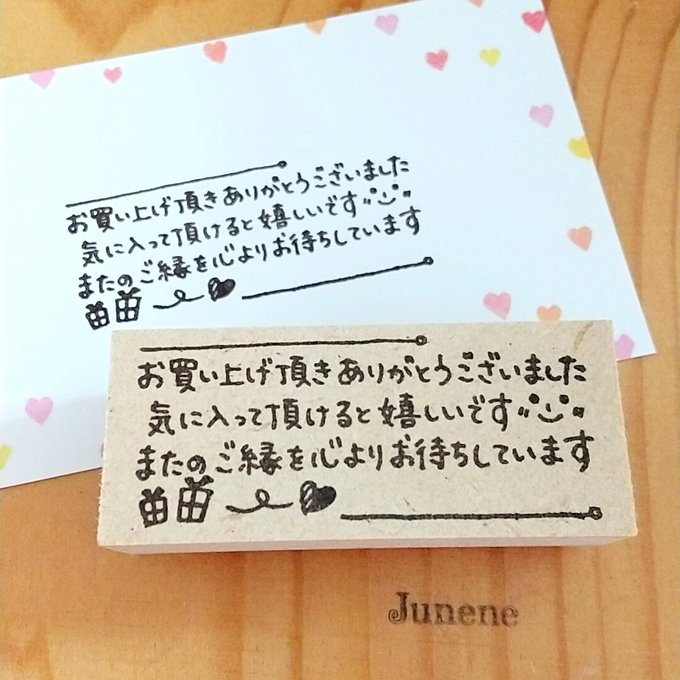 お買い上げ頂きありがとうございました
気に入って頂けると嬉しいです
またのご縁を心よりお待ちしています
お買い上げ頂きありがとうございました
気に入って頂けると嬉しいです
またのご縁を心よりお待ちしています
Junene